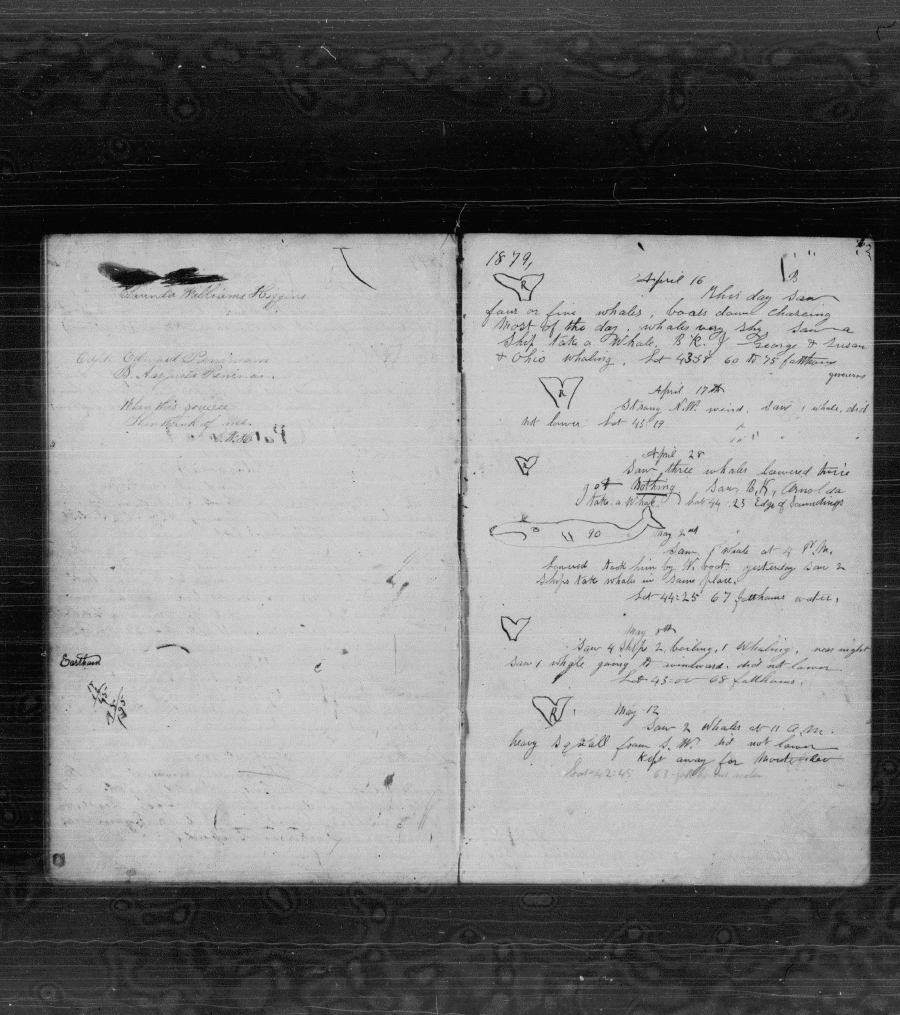 Williams Higgins
Capt. Edward Penniman
B. Augusta Penniman.
When this you see
think of me.
Eastham
1879,
R
April 16
This day saw
four or five whales, boats down chaseing
Most of the day. whales very shy saw a
Ship take a Whale, B.K. J George & Susan
& Ohio whaling. Lat 43.58 60 to 75 fatthoms
R
April 17th
Strong N.W. wind. Saw 1 whale, did
not lower Lat 45.19
R
April 28
Saw three whales lowered twice
got Nothing Saw B,K, Arnolda
take a Whale. Lat 44.23 Edge of Soundings
90
May 2nd
Saw 1 whale at 4 P.M.
Lowered took him by W. boat. yesterday saw 2
Ships take whale in same place.
Lat 44-25 67 fatthoms water,
May 8th
Saw 4 Ships 2 boiling, 1 Whaling. near night
Saw 1 whale going to windward. did not lower
Lat 43-00 68 fatthoms.
R
May 12
Saw 2 Whales at 11 A.M.
heavy squall from S.W. did not lower
Kept away for Montevideo
Lat 42-45 63